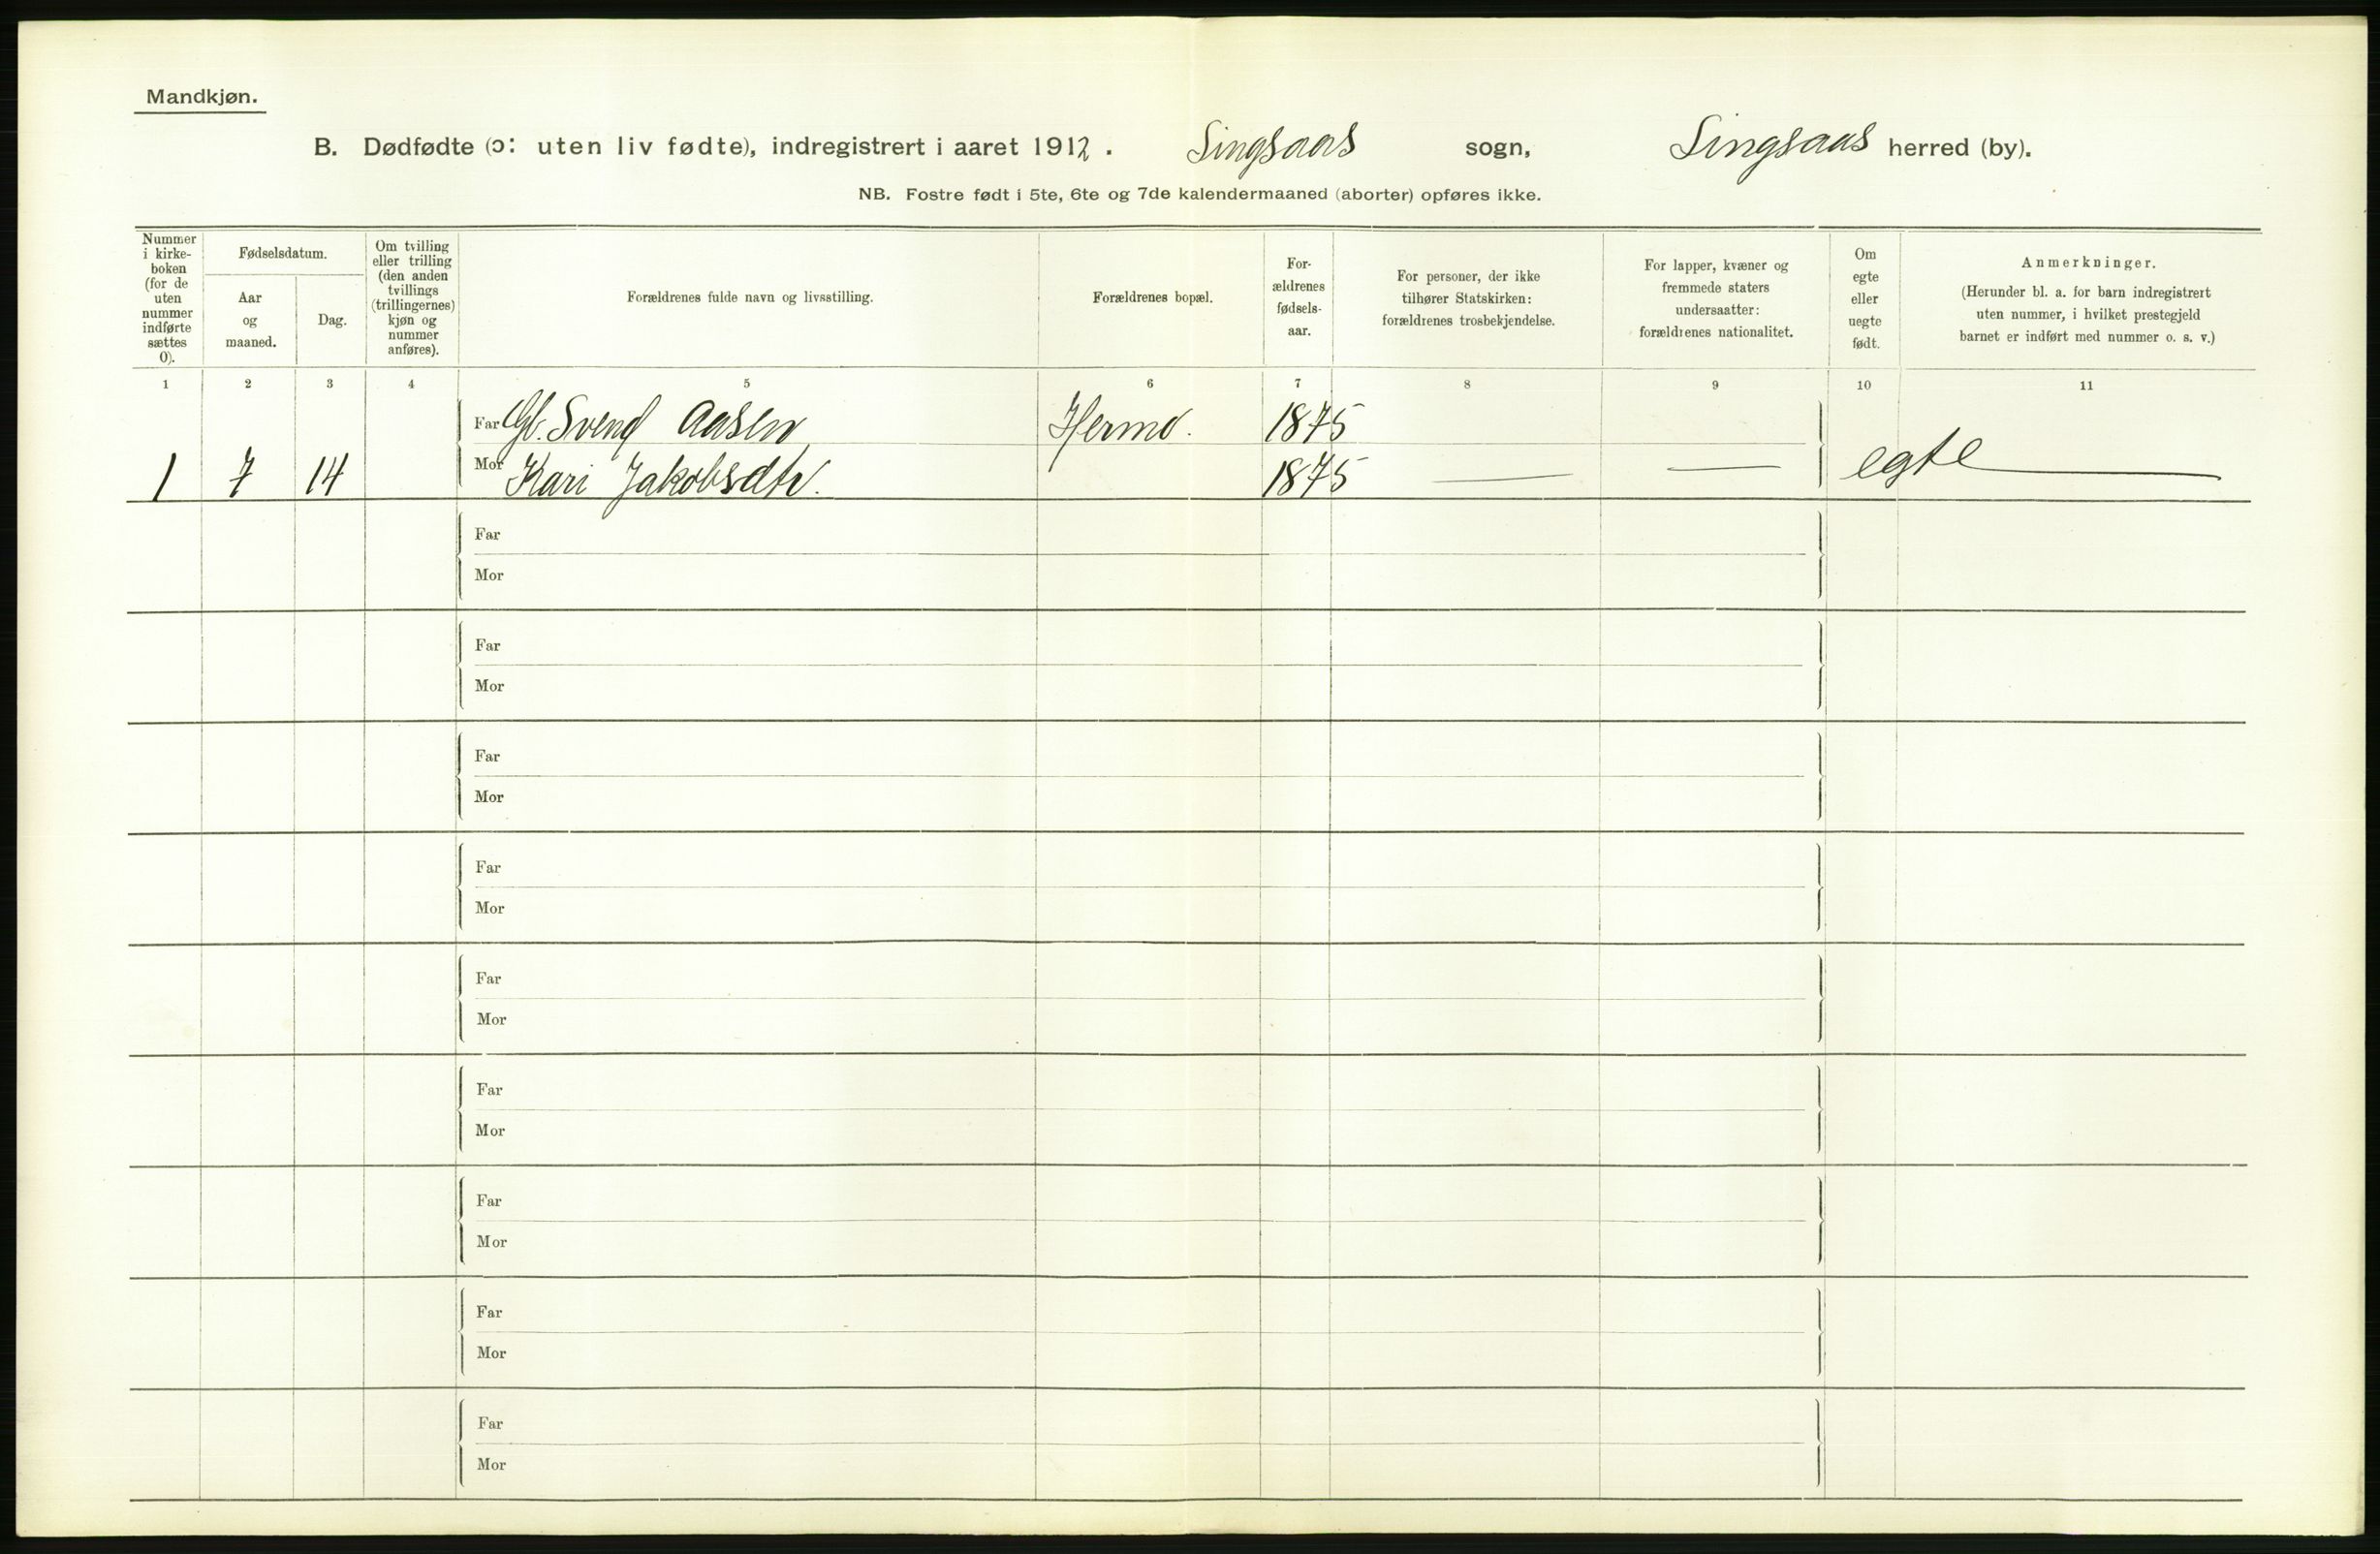 Mandkjøn.
B. Dødfødte (ɔ: uten liv fødte), indregistrert i aaret 1912. Singsaas sogn, Singsaas herred (by).
NB. Fostre født i 5te, 6te og 7de kalendermaaned (aborter) opføres ikke.
Nummer
i kirke-
boken
(for de
uten
nummer
indførte
sættes
0).
Fødselsdatum.
Aar
og
maaned.
Dag.
Om tvilling
eller trilling
(den anden
tvillings
(trillingernes)
kjøn og
nummer
anføres).
Forældrenes fulde navn og livsstilling.
Forældrenes bopæl.
For-
ældrenes
fødsels-
aar.
For personer, der ikke
tilhører Statskirken:
forældrenes trosbekjendelse.
For lapper, kvæner og
fremmede staters
undersaatter:
forældrenes nationalitet.
Om
egte
eller
uegte
født.
Anmerkninger.
(Herunder bl. a. for barn indregistrert
uten nummer, i hvilket prestegjeld
barnet er indført med nummer o. s. v.)
1 2 3 4 5 6 7 8 9 10 11
Far Gb. Svend Aasen Hermo. 1875
1 7 14 Mor Kari Jakobsdtr. 1875 — — egte —
Far
Mor
Far
Mor
Far
Mor
Far
Mor
Far
Mor
Far
Mor
Far
Mor
Far
Mor
Far
Mor